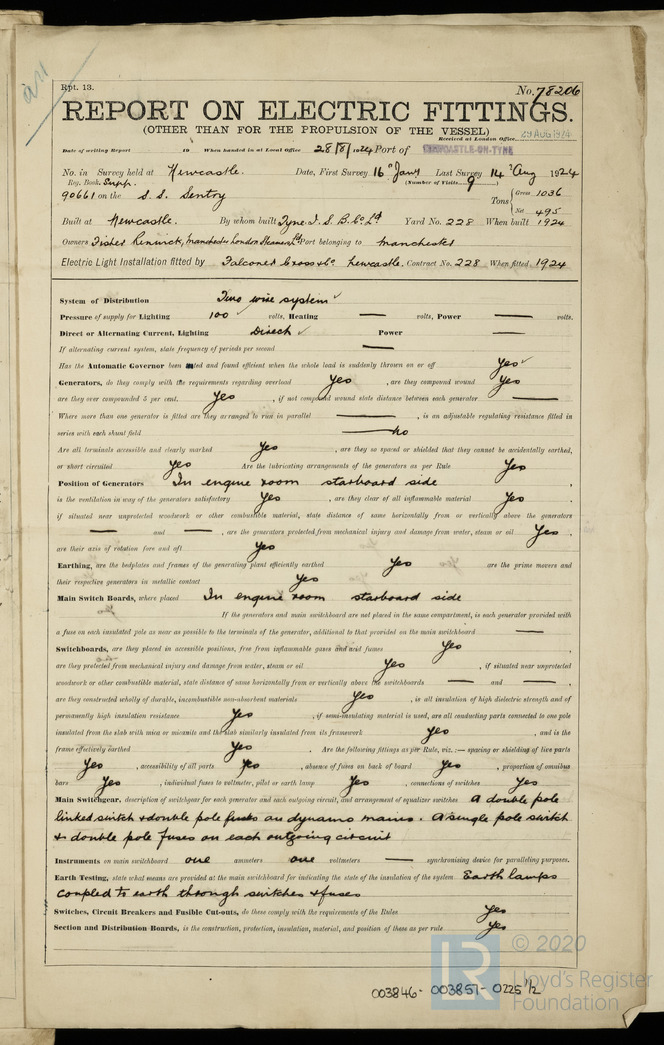 all
Rpt. 13.
No. 78206
REPORT ON ELECTRIC FITTINGS.
(OTHER THAN FOR THE PROPULSION OF THE VESSEL)
Received at London Office 29 AUG 1924
Date of writing Report 19 When handed in at Local Office 28/8/1924 Port of NEWCASTLE-ON-TYNE
No. in Survey held at Newcastle. Date, First Survey 16th Jany Last Survey 14th Aug 1924
Reg. Book. Supp. (Number of Visits 9)
90661 on the S.S. Sentry Tons { Gross 1036
Net 495
Built at Newcastle. By whom built Tyne I. S. B. Co Ld Yard No. 228 When built 1924
Owners Fisher Renwick, Manchester London Steamers Ld Port belonging to Manchester
Electric Light Installation fitted by Falconer Cross & Co Newcastle. Contract No. 228 When fitted 1924
System of Distribution Two wire system ✓
Pressure of supply for Lighting 100 ✓ volts, Heating — volts, Power — volts.
Direct or Alternating Current, Lighting Direct ✓ Power —
If alternating current system, state frequency of periods per second —
Has the Automatic Governor been tested and found efficient when the whole load is suddenly thrown on or off Yes ✓
Generators, do they comply with the requirements regarding overload Yes , are they compound wound Yes
are they over compounded 5 per cent. Yes , if not compound wound state distance between each generator —
Where more than one generator is fitted are they arranged to run in parallel — , is an adjustable regulating resistance fitted in
series with each shunt field — No
Are all terminals accessible and clearly marked Yes , are they so spaced or shielded that they cannot be accidentally earthed,
or short circuited Yes Are the lubricating arrangements of the generators as per Rule Yes
Position of Generators In engine room starboard side ,
is the ventilation in way of the generators satisfactory Yes , are they clear of all inflammable material Yes ,
if situated near unprotected woodwork or other combustible material, state distance of same horizontally from or vertically above the generators
— and — , are the generators protected from mechanical injury and damage from water, steam or oil Yes ,
are their axis of rotation fore and aft Yes
Earthing, are the bedplates and frames of the generating plant efficiently earthed Yes are the prime movers and
their respective generators in metallic contact Yes
Main Switch Boards, where placed In engine room starboard side
If the generators and main switchboard are not placed in the same compartment, is each generator provided with
a fuse on each insulated pole as near as possible to the terminals of the generator, additional to that provided on the main switchboard —
Switchboards, are they placed in accessible positions, free from inflammable gases and acid fumes Yes ,
are they protected from mechanical injury and damage from water, steam or oil Yes , if situated near unprotected
woodwork or other combustible material, state distance of same horizontally from or vertically above the switchboards — and — ,
are they constructed wholly of durable, incombustible non-absorbent materials Yes , is all insulation of high dielectric strength and of
permanently high insulation resistance Yes , if semi-insulating material is used, are all conducting parts connected to one pole
insulated from the slab with mica or micanite and the slab similarly insulated from its framework Yes , and is the
frame effectively earthed Yes . Are the following fittings as per Rule, viz.:— spacing or shielding of live parts
Yes , accessibility of all parts Yes , absence of fuses on back of board Yes , proportion of omnibus
bars Yes , individual fuses to voltmeter, pilot or earth lamp Yes , connections of switches Yes
Main Switchgear, description of switchgear for each generator and each outgoing circuit, and arrangement of equalizer switches A double pole
linked switch & double pole fuses on dynamo mains. A single pole switch
& double pole fuses on each outgoing circuit
Instruments on main switchboard one ammeters one voltmeters — synchronising device for paralleling purposes.
Earth Testing, state what means are provided at the main switchboard for indicating the state of the insulation of the system Earth lamps
coupled to earth through switches & fuses
Switches, Circuit Breakers and Fusible Cut-outs, do these comply with the requirements of the Rules Yes
Section and Distribution Boards, is the construction, protection, insulation, material, and position of these as per rule Yes
003846-003851-0225 1/2
LR © 2020
Lloyd's Register
Foundation